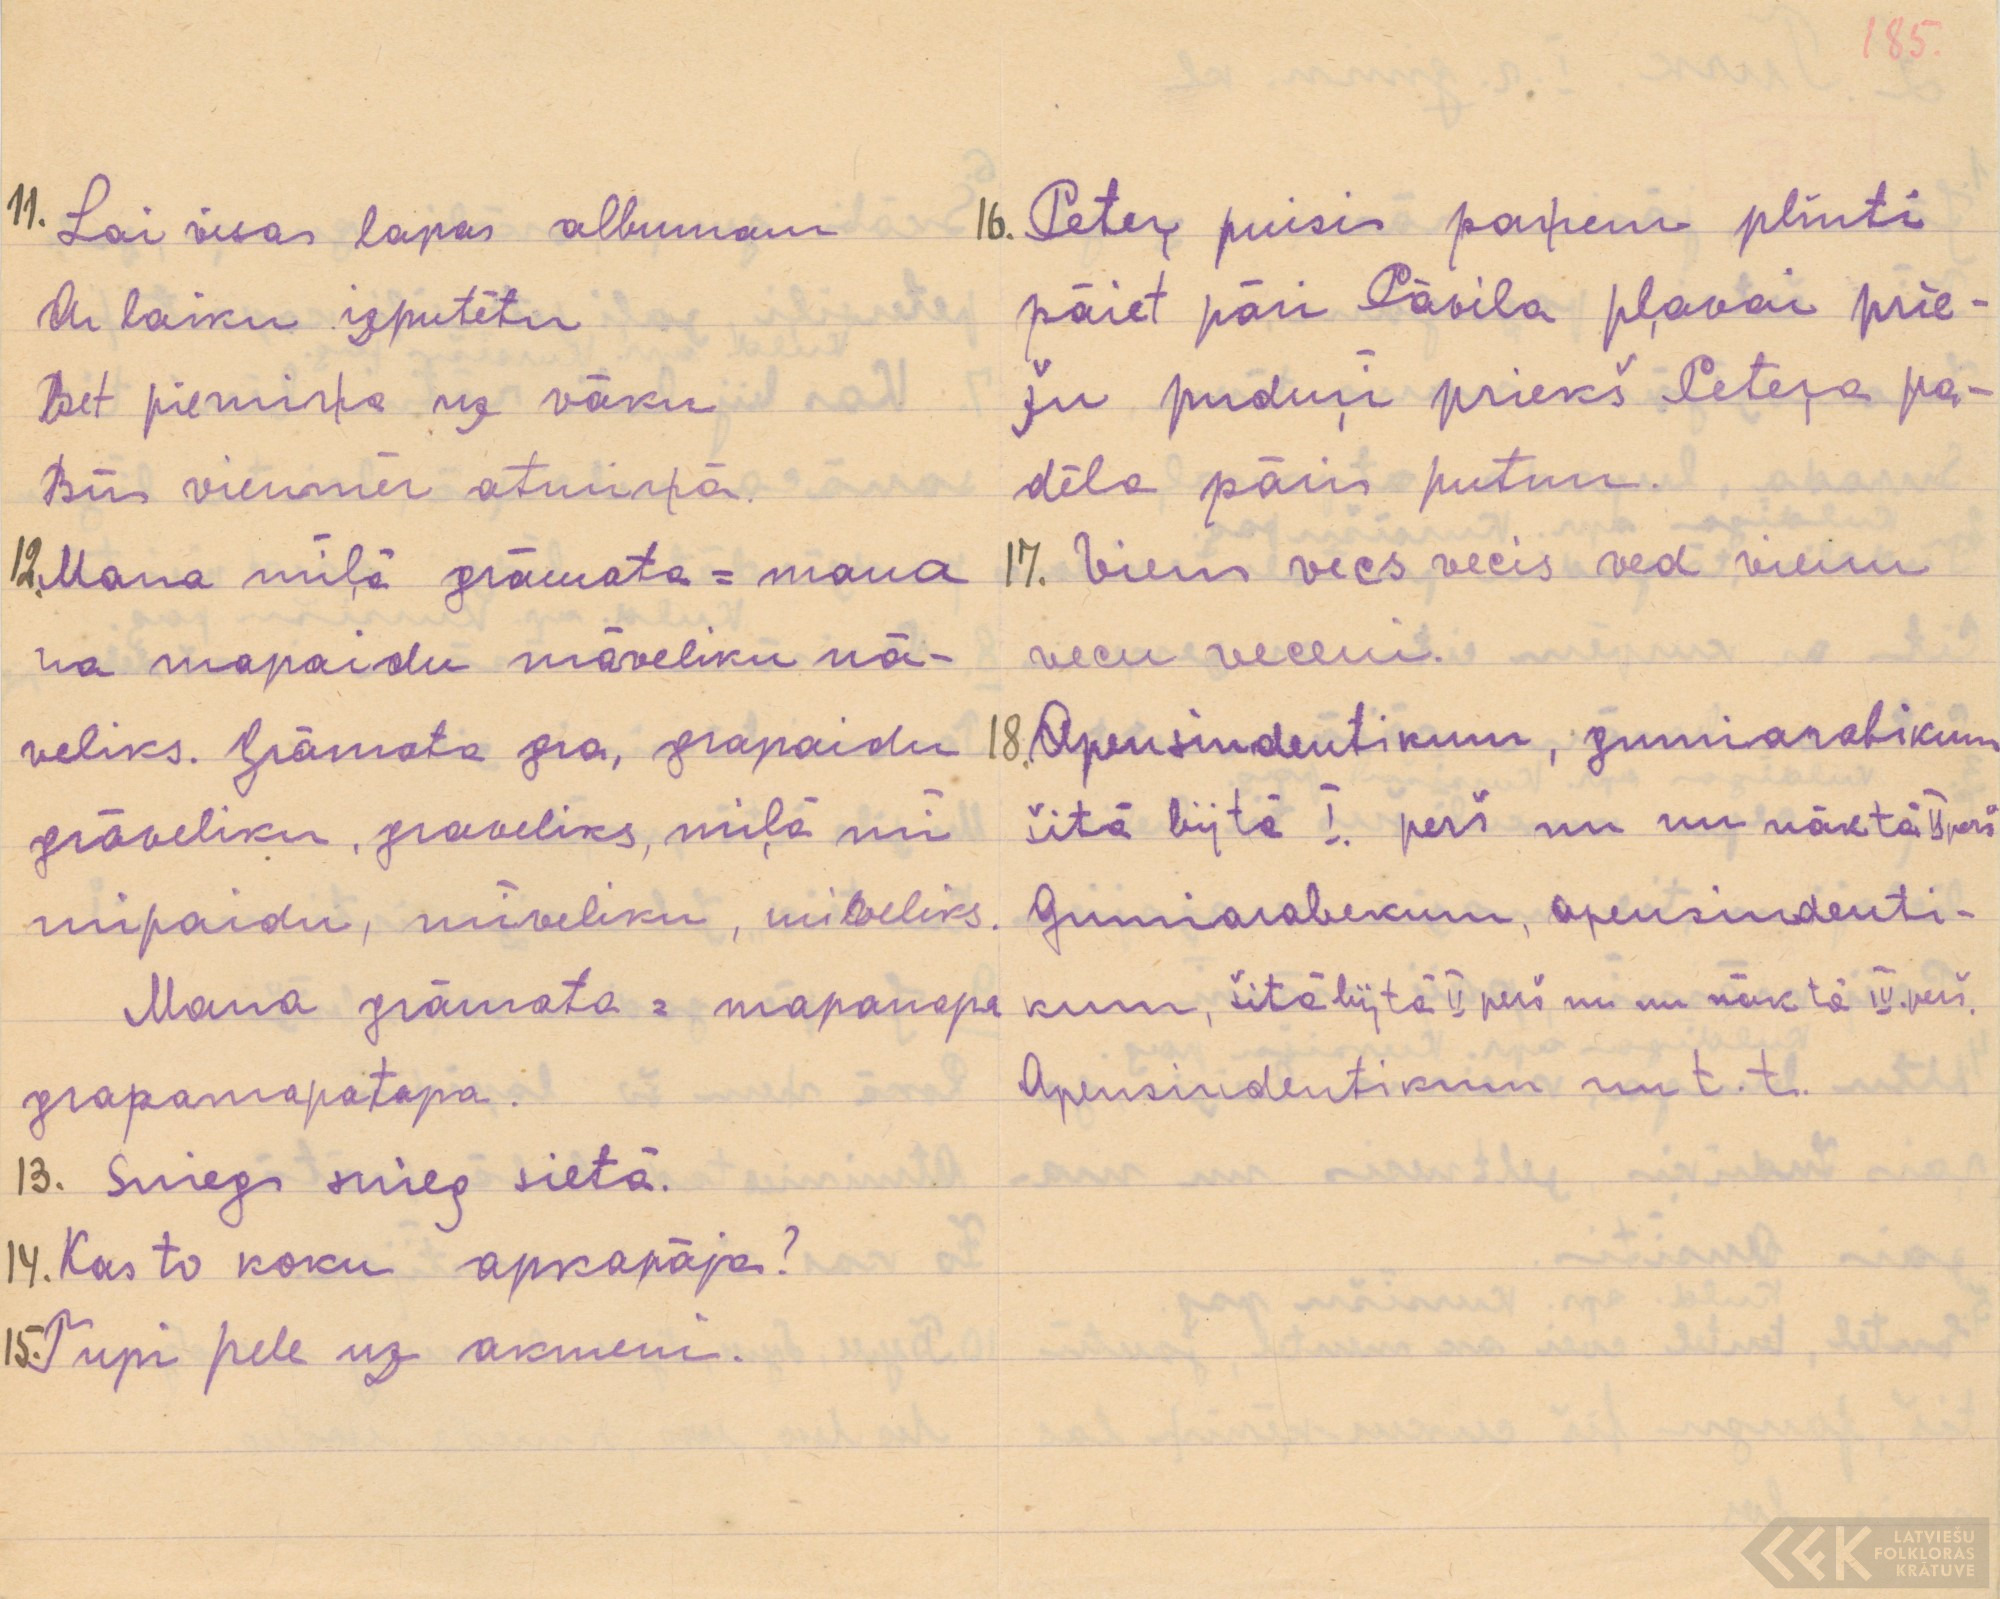 185.
11. Lai visas lapas albumam
Ar laiku izputētu
Bet piemiņa uz vāku
Būs vienmēr atmiņā.
12. Mana mīļā grāmata = mana
na mapaidu māveliku nā-
veliks. Grāmata gra, grapaidu
grāveliku, graveliks, mīļā mī
mipaidu, mīveliku, miveliks.
Mana grāmata = mapanapa
grapamapatapa.
13. Sniegs snieg sietā.
14. Kas to koku apkapāja?
15. Tupi pele uz akmeni.
16. Peteŗ puisis paņem plinti
pāiet pāri Pāvila pļavai prie-
žu puduŗi priekš Peteŗa pa-
dēla pāris putnu.
17. Viens vecs vecis ved vienu
vecu veceni.
18. Apensindentikum, gumiarabikum
šitā bijtā I. perš nu nu nāktā II perš
Gumiarabekum, apensindenti-
kum, šitā bijtā II perš nu nu nāk tā IV. perš.
Apensindentikum nu t. t.
LATVIEŠU
FOLKLORAS
KRĀTUVE